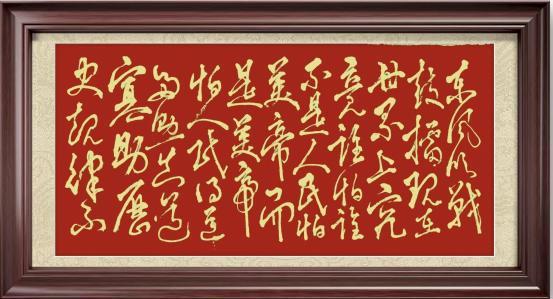 东风吹战
鼓擂现在
世界上究
竟谁怕谁
不是人民怕
美帝而
是美帝
怕人民得道
多助失道
寡助历
史规律不